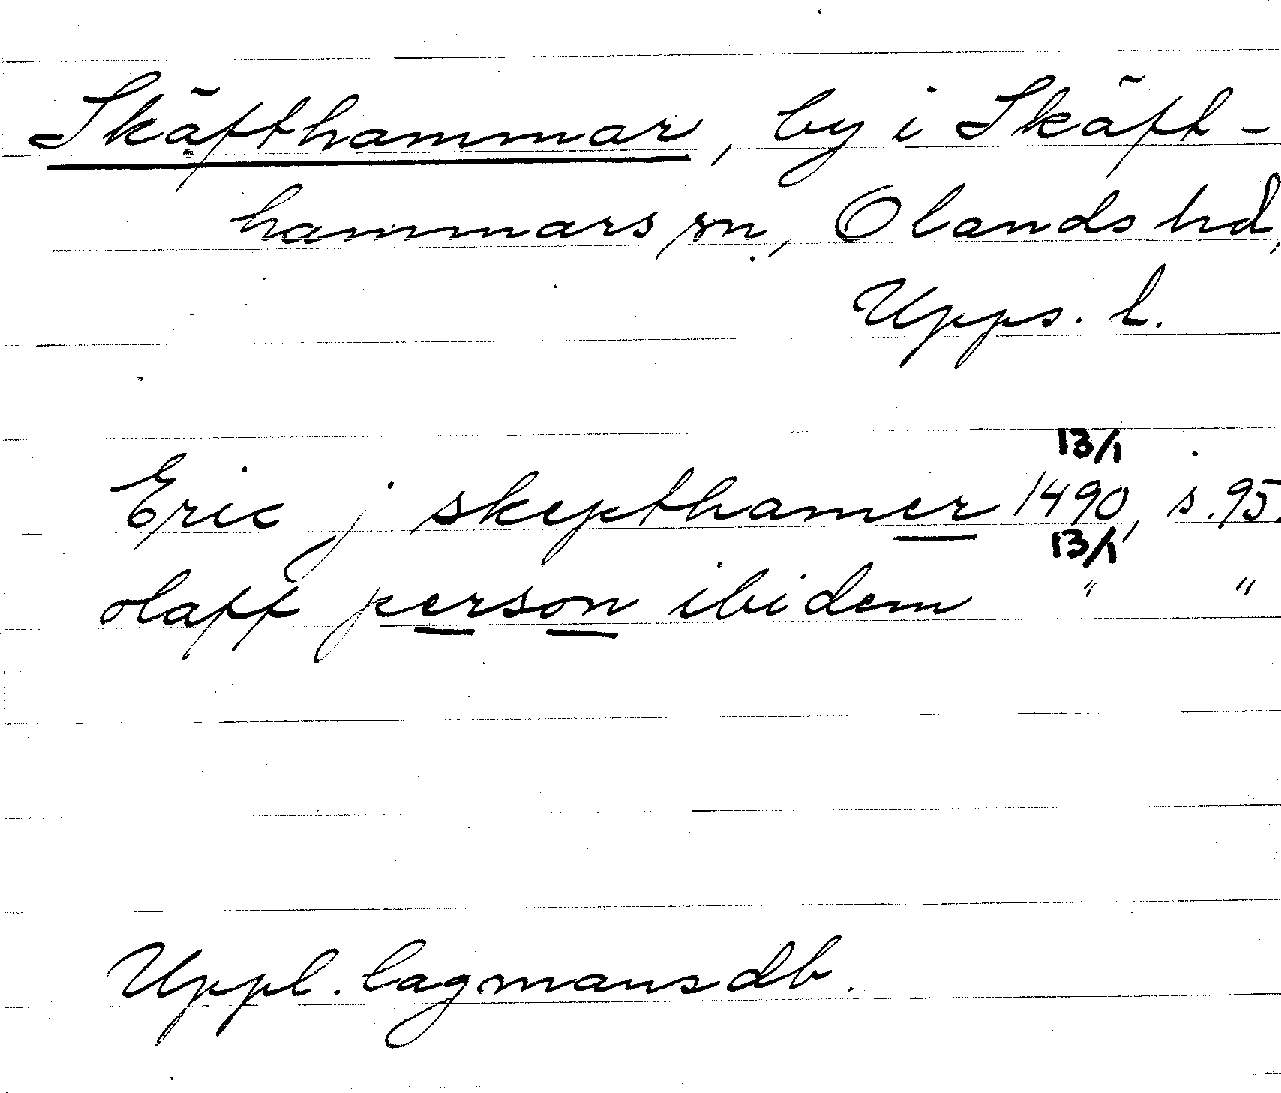 Skäfthammar, by i Skäft-
hammars sn, Olands hd,
Upps. l.
13/1
Eric j skepthamer 1490, s. 95.
13/1
olaff person ibidem " "
Uppl. lagmansdb.